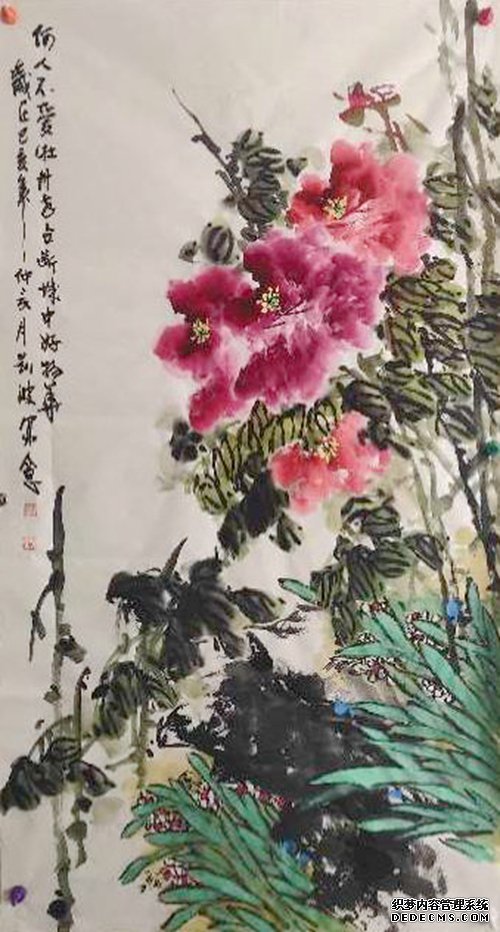 何人不愛牡丹花占断城中好物華
歲在己亥年 月 波写意
织梦内容管理系统
DEDECMS.COM